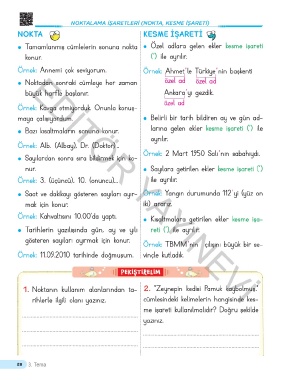 NOKTALAMA İŞARETLERİ (NOKTA, KESME İŞARETİ)
NOKTA
• Tamamlanmış cümlelerin sonuna nokta
konur.
Örnek: Annemi çok seviyorum.
• Noktadan sonraki cümleye her zaman
büyük harfle başlanır.
Örnek: Kavga etmiyorduk. Oyunla konuş-
maya çalışıyorduk.
• Bazı kısaltmaların sonuna konur.
Örnek: Alb. (Albay), Dr. (Doktor)...
• Sayılardan sonra sıra bildirmek için ko-
nur.
Örnek: 3. (üçüncü), 10. (onuncu)...
• Saat ve dakikayı gösteren sayıları ayır-
mak için konur.
Örnek: Kahvaltımı 10.00'da yaptı.
• Tarihlerin yazılışında gün, ay ve yılı
gösteren sayıları ayırmak için konur.
Örnek: 11.09.2010 tarihinde doğmuşum.
KESME İŞARETİ
• Özel adlara gelen ekler kesme işareti
(') ile ayrılır.
Örnek: Ahmet'le Türkiye'nin başkenti
özel ad özel ad
Ankara'yı gezdik.
özel ad
• Belirli bir tarih bildiren ay ve gün ad-
larına gelen ekler kesme işareti (') ile
ayrılır.
Örnek: 2 Mart 1950 Salı'nın sabahıydı.
• Sayılara getirilen ekler kesme işareti (')
ile ayrılır.
Örnek: Yangın durumunda 112'yi (yüz on
iki) ararız.
• Kısaltmalara getirilen ekler kesme işa-
reti (') ile ayrılır.
Örnek: TBMM'nin çılışı büyük bir se-
vinçle kutladık.
PEKİŞTİRELİM
1. Noktanın kullanım alanlarından ta-
rihlerle ilgili olanı yazınız.
2. "Zeynepin kedisi Pamuk kaybolmuş."
cümlesindeki kelimelerin hangisinde kes-
me işareti kullanılmalıdır? Doğru şekilde
yazınız.
3. Tema
EDİTÖR YAYINEVİ